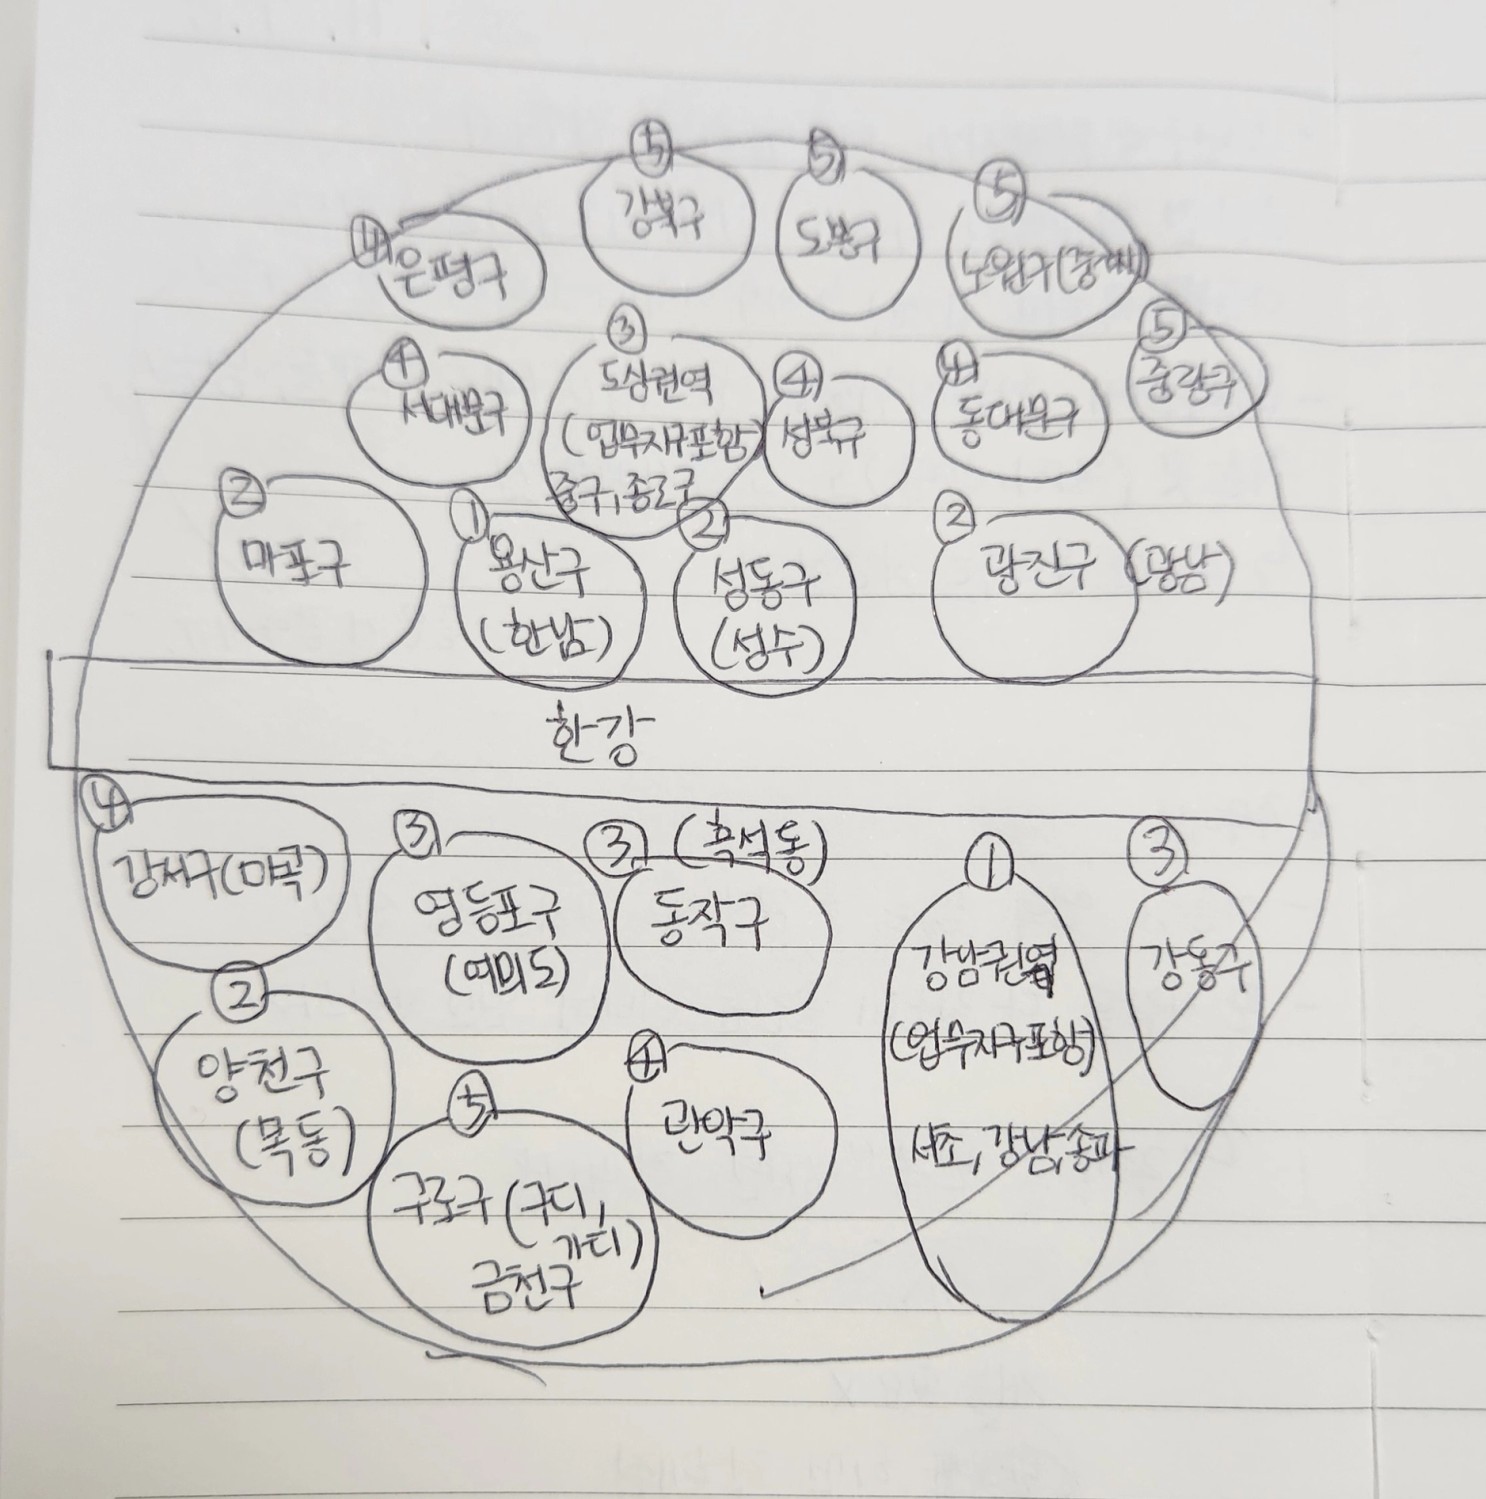 ⑤
강북구
⑤
도봉구
⑤
노원구(중계)
④
은평구
⑤
중랑구
④
서대문구
③
도심권역
(업무지구포함)
중구, 종로구
④
성북구
④
동대문구
②
마포구
①
용산구
(한남)
②
성동구
(성수)
②
광진구 (광남)
한강
④
강서구(마곡)
③
영등포구
(여의도)
③ (흑석동)
동작구
①
강남권역
(업무지구포함)
서초, 강남, 송파
③
강동구
②
양천구
(목동)
⑤
구로구 (구디,
가디)
금천구
④
관악구